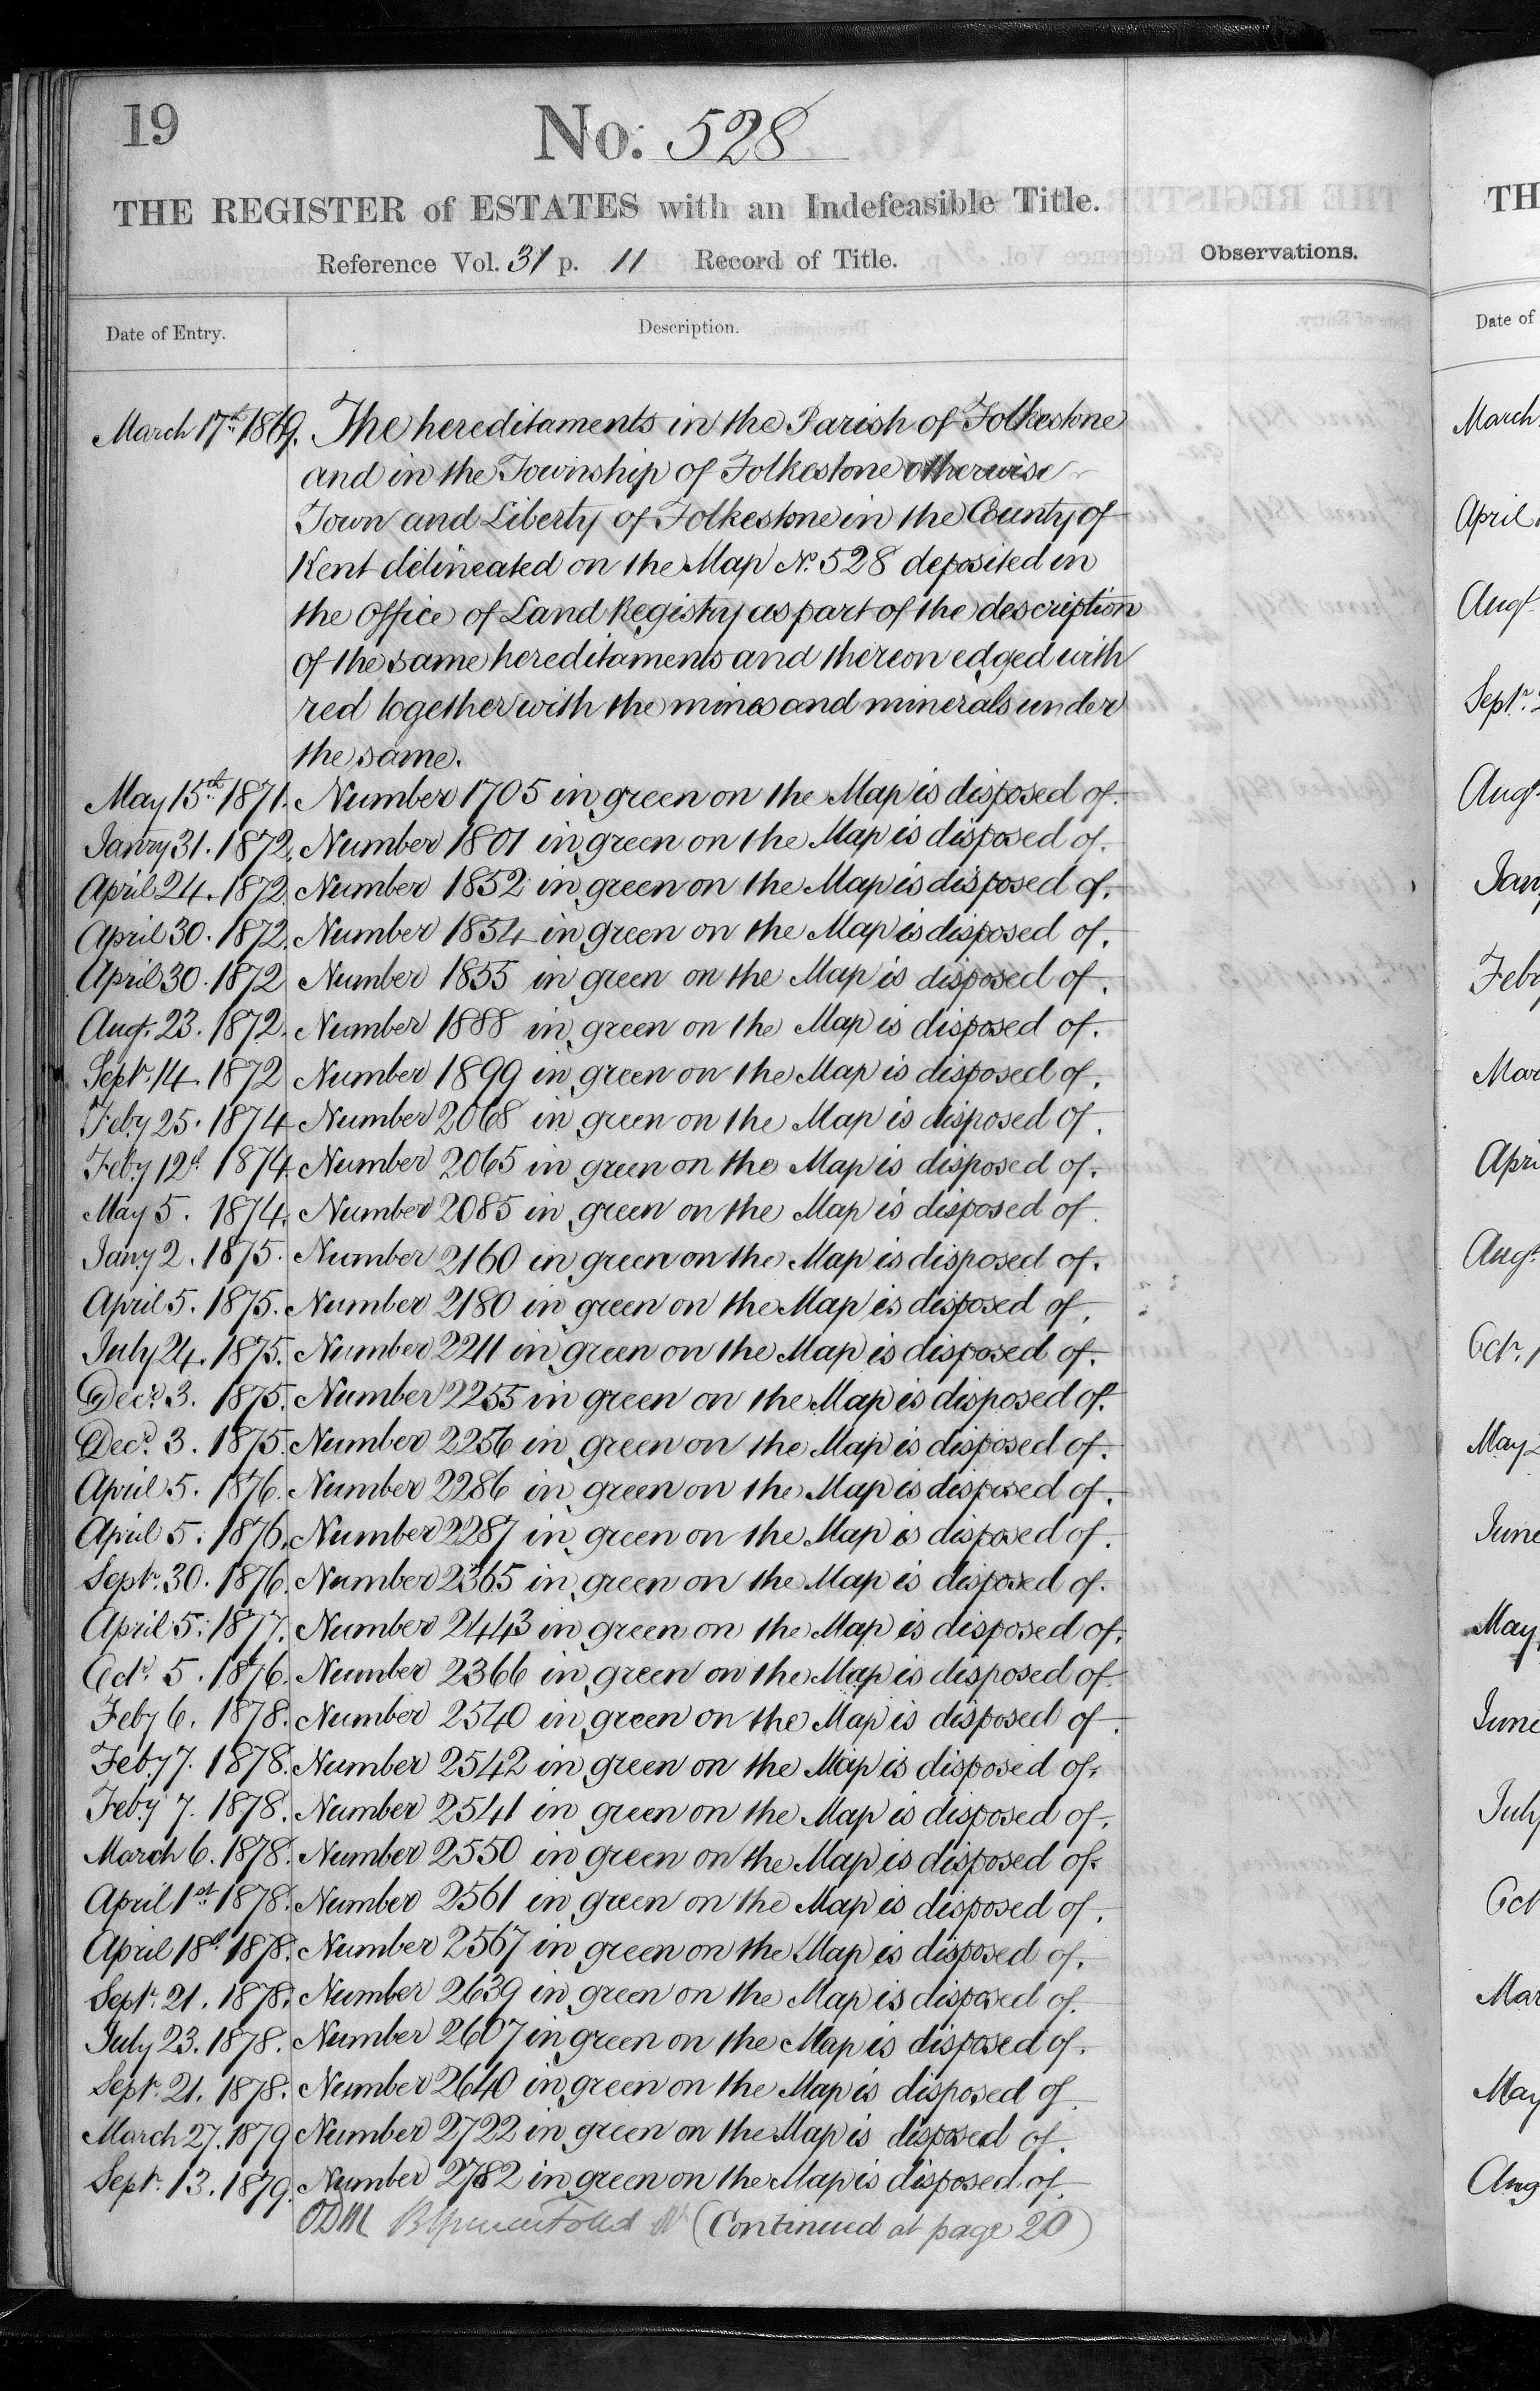 19
No. 528
THE REGISTER of ESTATES with an Indefeasible Title.
Reference Vol. 31 p. 11 Record of Title.
Observations.
Date of Entry.
Description.
March 17th 1869. The hereditaments in the Parish of Folkestone
and in the Township of Folkestone otherwise
Town and Liberty of Folkestone in the County of
Kent delineated on the Map No. 528 deposited in
the Office of Land Registry as part of the description
of the same hereditaments and thereon edged with
red together with the mines and minerals under
the same.
May 15th 1871. Number 1705 in green on the Map is disposed of.
Janry 31. 1872. Number 1801 in green on the Map is disposed of.
April 24. 1872. Number 1852 in green on the Map is disposed of.
April 30. 1872. Number 1854 in green on the Map is disposed of.
April 30. 1872 Number 1855 in green on the Map is disposed of.
Augt. 23. 1872. Number 1888 in green on the Map is disposed of.
Septr. 14. 1872 Number 1899 in green on the Map is disposed of.
Feby 25. 1874 Number 2068 in green on the Map is disposed of.
Feby 12th 1874. Number 2065 in green on the Map is disposed of.
May 5. 1874. Number 2085 in green on the Map is disposed of.
Jany 2. 1875. Number 2160 in green on the Map is disposed of.
April 5. 1875. Number 2180 in green on the Map is disposed of.
July 24. 1875. Number 2211 in green on the Map is disposed of.
Decr. 3. 1875. Number 2255 in green on the Map is disposed of.
Decr. 3. 1875. Number 2256 in green on the Map is disposed of.
April 5. 1876. Number 2286 in green on the Map is disposed of.
April 5. 1876. Number 2287 in green on the Map is disposed of.
Septr. 30. 1876. Number 2365 in green on the Map is disposed of.
April 5. 1877. Number 2443 in green on the Map is disposed of.
Octr. 5. 1876. Number 2366 in green on the Map is disposed of.
Feby 6. 1878. Number 2540 in green on the Map is disposed of.
Feby 7. 1878. Number 2542 in green on the Map is disposed of.
Feby 7. 1878. Number 2541 in green on the Map is disposed of.
March 6. 1878. Number 2550 in green on the Map is disposed of.
April 1st 1878. Number 2561 in green on the Map is disposed of.
April 18th 1878. Number 2567 in green on the Map is disposed of.
Septr. 21. 1878. Number 2639 in green on the Map is disposed of.
July 23. 1878. Number 2607 in green on the Map is disposed of.
Septr. 21. 1878. Number 2640 in green on the Map is disposed of.
March 27. 1879 Number 2722 in green on the Map is disposed of.
Septr. 13. 1879. Number 2782 in green on the Map is disposed of.
(Continued at page 20)
TH
Date of
March
April
Augt
Septr.
Augt
Jan
Feby
Mar
Apri
Augt
Octr.
May
June
May
June
July
Oct
Mar
May
Aug